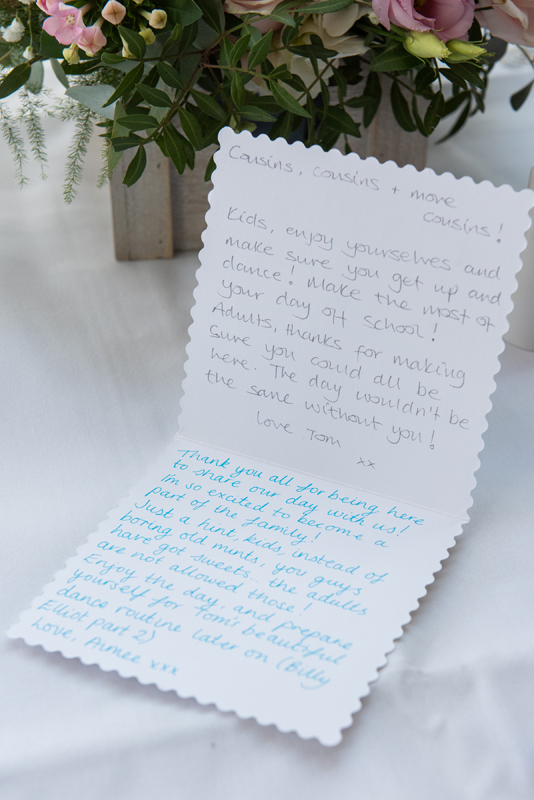 Cousins, cousins + more
cousins!
Kids, enjoy yourselves and
make sure you get up and
dance! Make the most of
your day off school!
Adults, thanks for making
sure you could all be
here. The day wouldn't be
the same without you!
love Tom
xx
Thank you all for being here
to share our day with us!
I'm so excited to become a
part of the family!
Just a hint, kids, instead of
boring old mints, you guys
have got sweets... the adults
are not allowed those!
Enjoy the day, and prepare
yourself for Tom's beautiful
dance routine later on (Billy
Elliot part 2)
Love, Aimee xxx